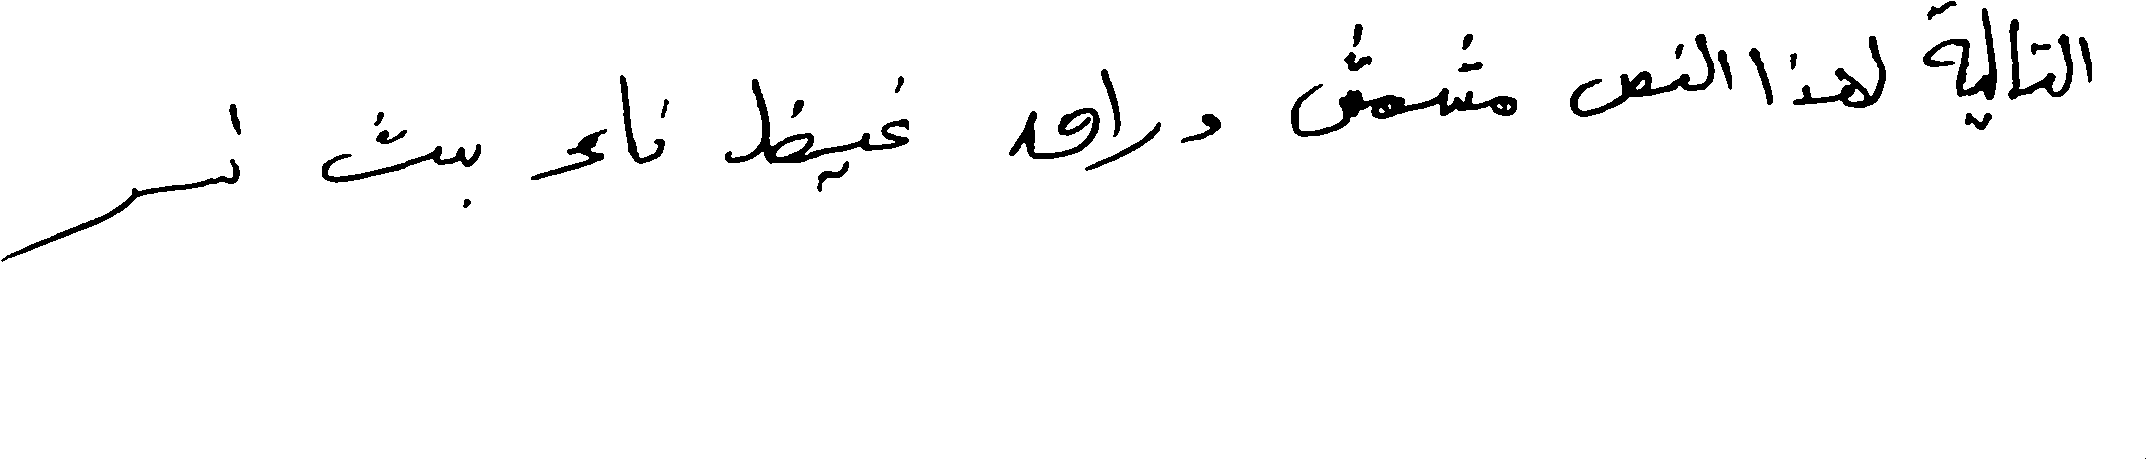 التالية لهذا النص مشمش دراق غيظ ناء بث نسر